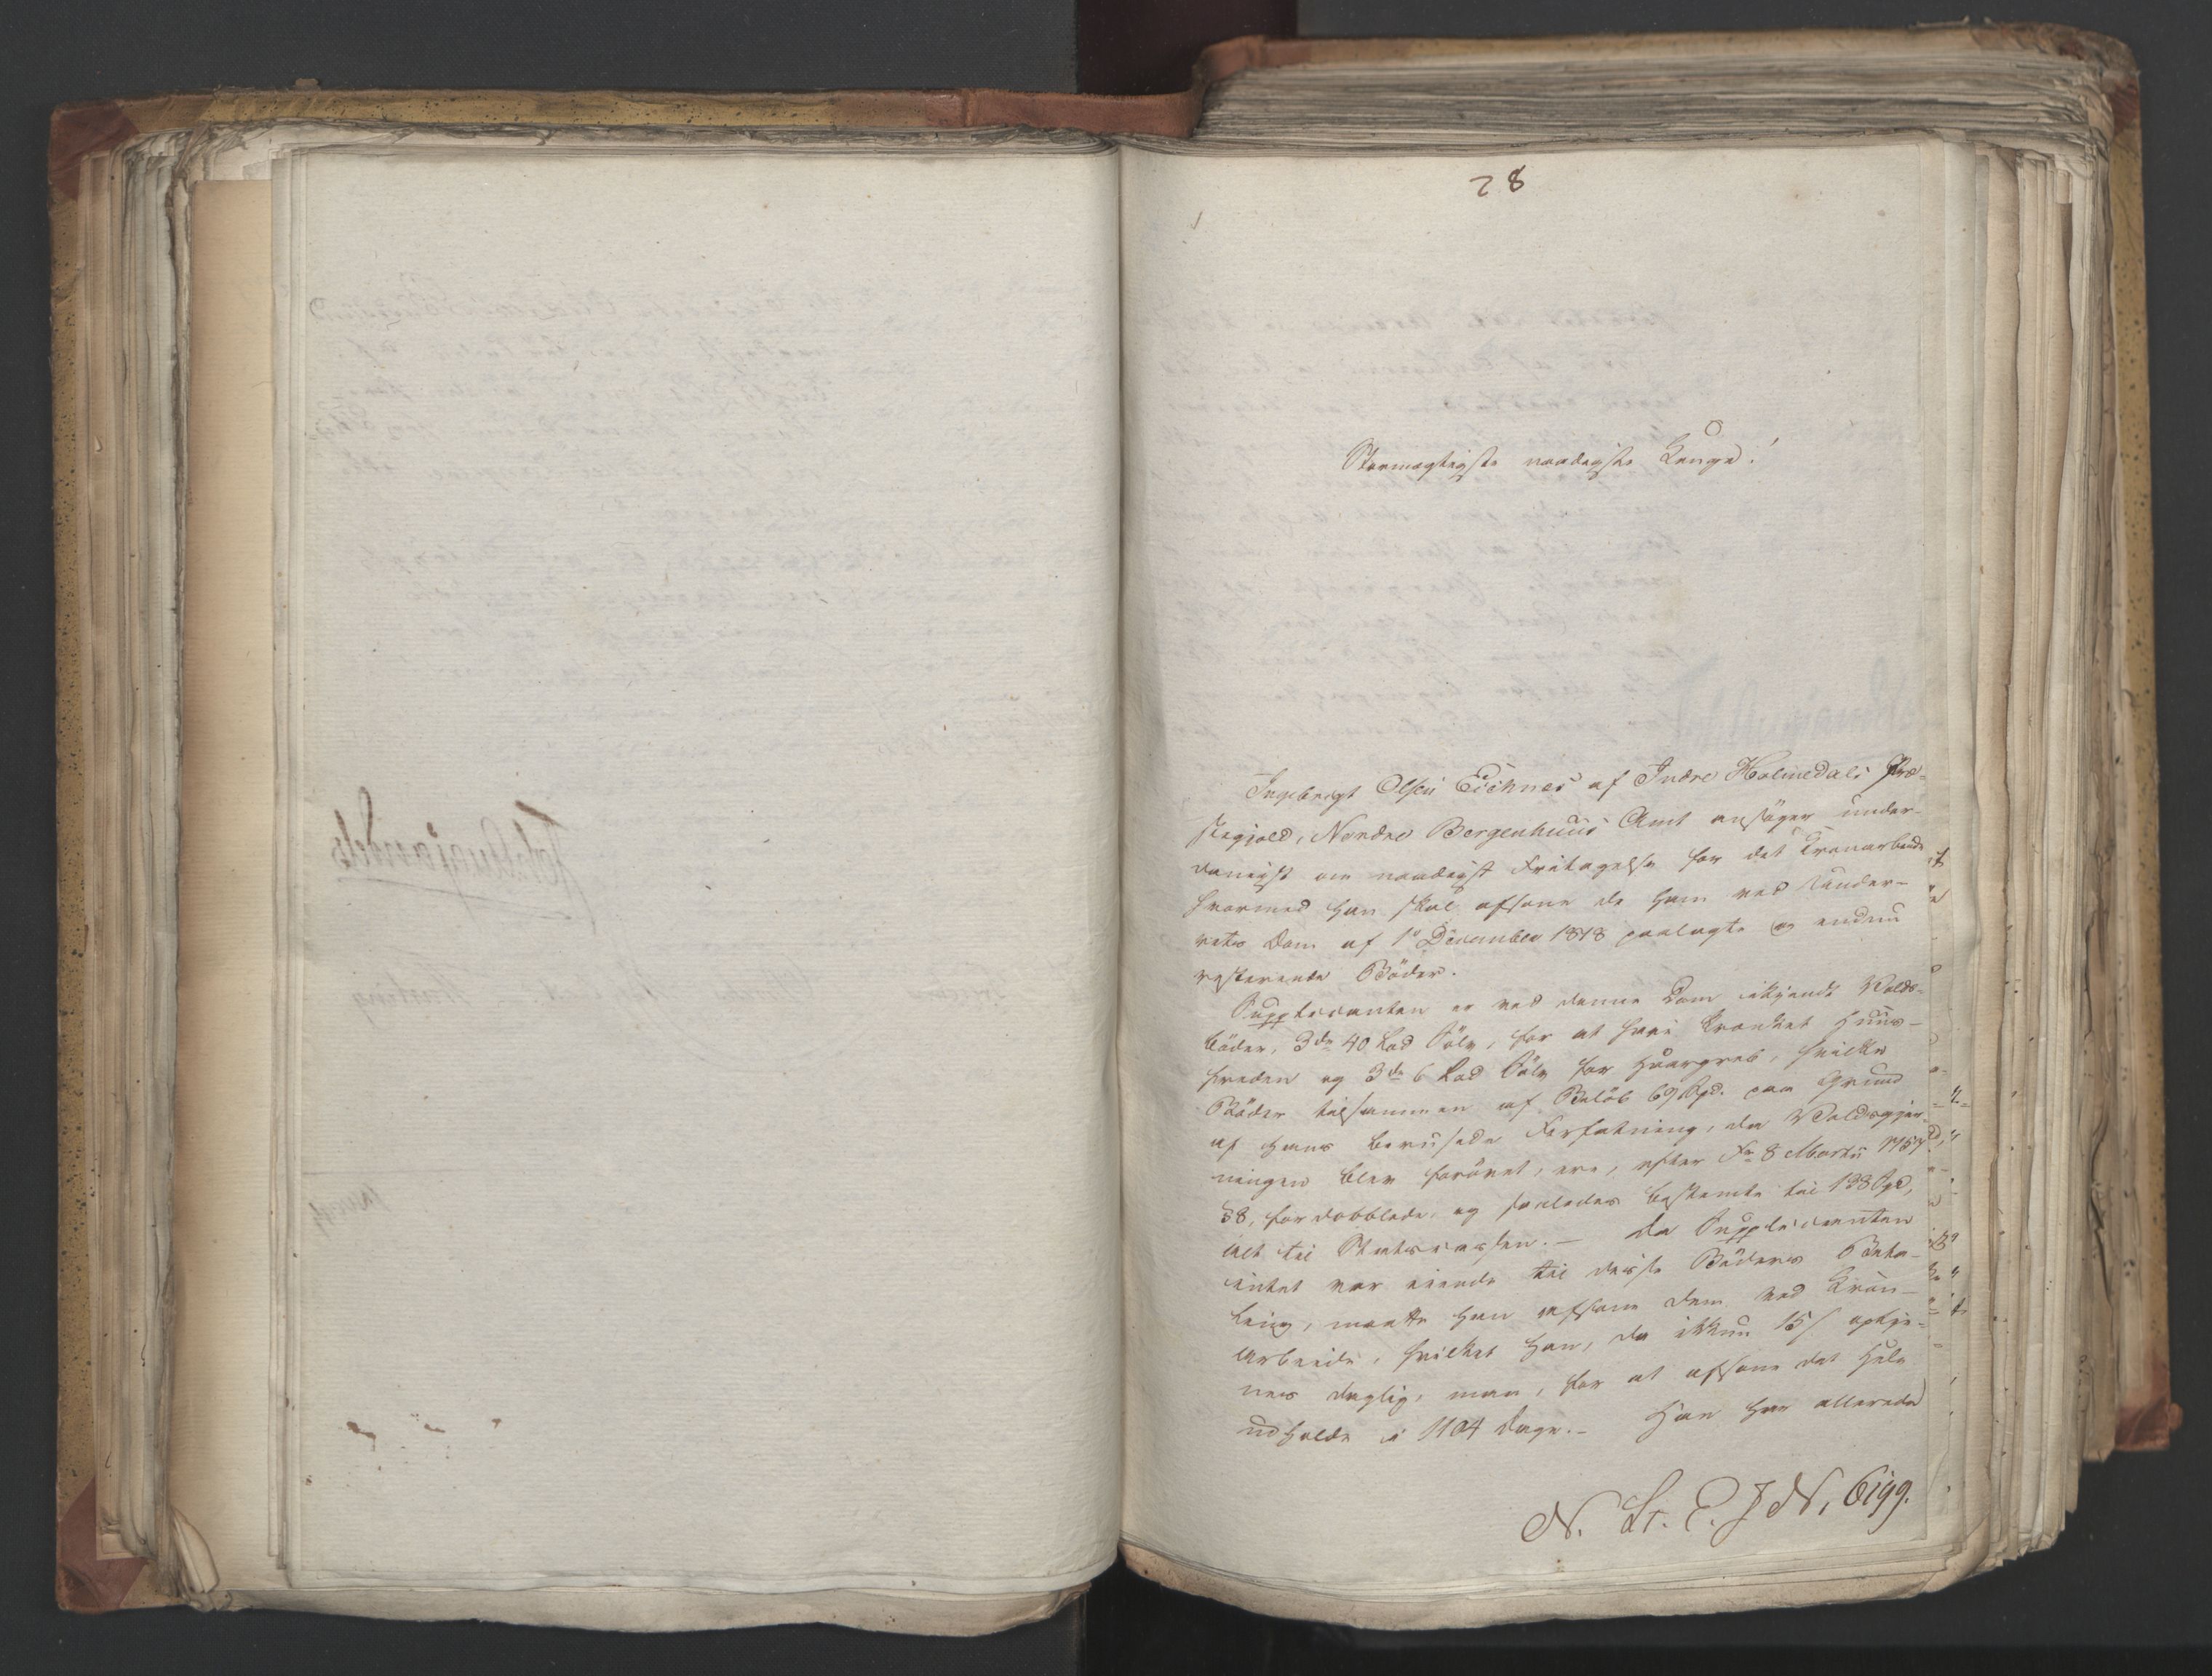 28
Stormægtigste naadigste Konge!
Ingebrigt Olsen Eichnes af Indre Holmedals Præ-
stegjeld, Nordre Bergenhuus Amt ansøger under-
danigst om naadigst Fritagelse for det Cronarbeide
hvormed han skal afsone de ham ved Under-
rets Dom af 1ste December 1818 paalagte og endnu
resterende Bøder.
Supplicanten er ved denne Dom ikjendt Volds-
bøder, 3de 40 Lod Sølv, for at have krænket Huus-
freden og 3de 6 Lod Sølv for Haargreb, hvilke
Bøder tilsammen af Beløb 69 Spd. paa Grund
af hans berusede Forfatning, da Voldsgjær-
ningen blev forøvet, ere, efter Fr. 8 Martii 1757
§8, fordobblede, og saaledes bestemte til 138 Spd,
alt til Statscassen. – Da Supplicanten
intet var eiende til disse Bøders Beta-
ling, maatte han afsone dem ved Cron-
Arbeide, hvilket han, da ikkun 15 s optje-
nes daglig, maa, for at afsone det Hele
udholde i 1104 Dage. – Han har allerede
N. St. E. J N. 6199.